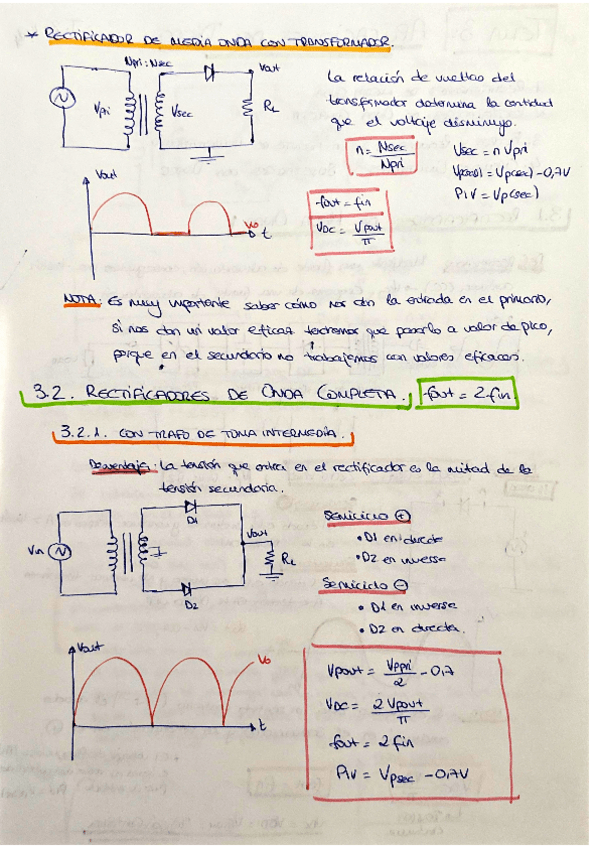 * RECTIFICADOR DE MEDIA ONDA CON TRANSFORMADOR.
Npri : Nsec
Vout
Vpri
Vsec
RL
La relación de vueltas del
transformador determina la cantidad
que el voltaje disminuye.
n = Nsec / Npri
Vsec = n Vpri
Vp(out) = Vp(sec) - 0,7V
PIV = Vp(sec)
Vout
Vo
t
fout = fin
VDC = Vpout / π
NOTA: Es muy importante saber cómo nos dan la entrada en el primario,
si nos dan un valor eficaz tendremos que pasarlo a valor de pico,
porque en el secundario no trabajamos con valores eficaces.
3.2. RECTIFICADORES DE ONDA COMPLETA.
fout = 2 fin
3.2.1. CON TRAFO DE TOMA INTERMEDIA.
Desventaja: La tensión que entra en el rectificador es la mitad de la
tensión secundaria.
Vin
D1
Vout
RL
D2
Semiciclo +
• D1 en directa
• D2 en inversa
Semiciclo -
• D1 en inversa
• D2 en directa.
Vout
Vo
t
Vpout = Vppri / 2 - 0,7
VDC = 2 Vpout / π
fout = 2 fin
PIV = Vpsec - 0,7V